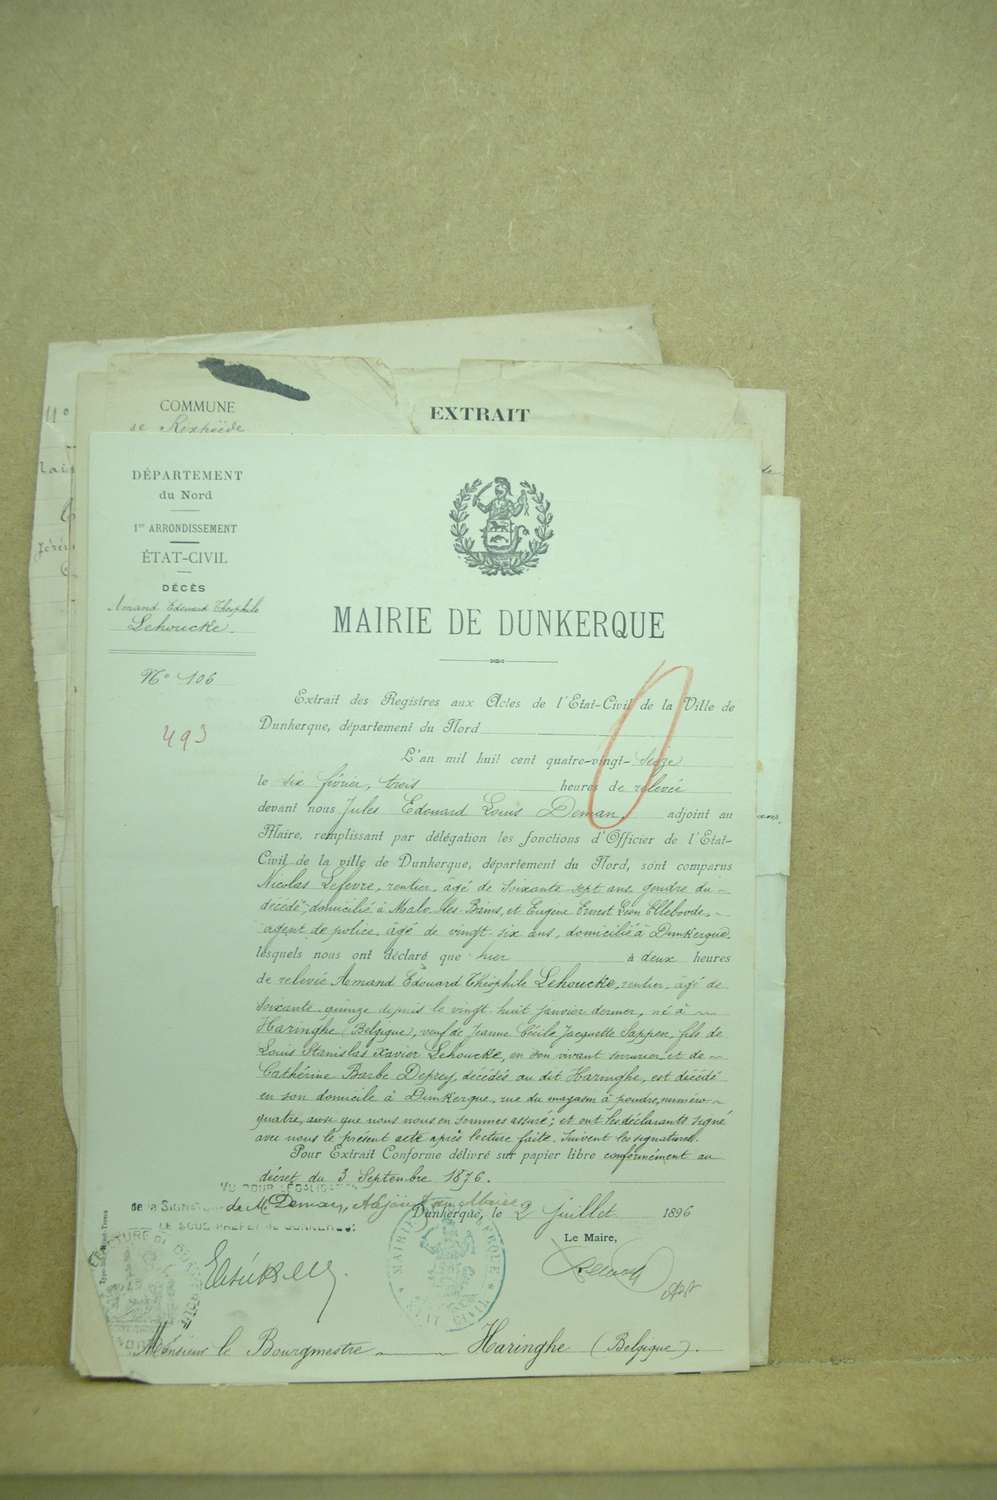 COMMUNE
de Rexpoëde
EXTRAIT
DÉPARTEMENT
du Nord
1er ARRONDISSEMENT
ÉTAT-CIVIL
DÉCÈS
Amand Edouard Théophile
Lehoucke.
N° 106
493
MAIRIE DE DUNKERQUE
Extrait des Registres aux Actes de l'Etat-Civil de la Ville de
Dunkerque, département du Nord
L'an mil huit cent quatre-vingt-seize
le six février, trois heures de relevée
devant nous Jules Edouard Louis Deman, adjoint au
Maire, remplissant par délégation les fonctions d'Officier de l'Etat-
Civil de la ville de Dunkerque, département du Nord, sont comparus
Nicolas Lefevre, rentier, âgé de soixante-sept ans, gendre du
décédé, domicilié à Malo les Bains, et Eugène Ernest Léon Elleboode,
agent de police, âgé de vingt six ans, domicilié à Dunkerque,
lesquels nous ont déclaré que hier à deux heures
de relevée Amand Edouard Théophile Lehoucke, rentier, âgé de
soixante quinze depuis le vingt huit janvier dernier, né à
Haringhe (Belgique), veuf de Jeanne Cécile Jacquette Sappen, fils de
Louis Stanislas Xavier Lehoucke, en son vivant serrurier et de
Cathérine Barbe Deprey, décédés au dit Haringhe, est décédé
en son domicile à Dunkerque, rue du magasin à poudre, numéro
quatre, ainsi que nous nous en sommes assuré; et ont les déclarants signé
avec nous le présent acte après lecture faite. Suivent les signatures.
Pour Extrait Conforme délivré sur papier libre conformément au
décret du 3 Septembre 1876.
VU POUR LÉGALISATION
de la SIGNATURE de Mr Deman, Adjoint au Maire
Dunkerque, le 2 juillet 1896
LE SOUS PRÉFET DE DUNKERQUE.
Le Maire,
MAIRIE DE DUNKERQUE
ÉTAT CIVIL
Monsieur le Bourgmestre Haringhe (Belgique).